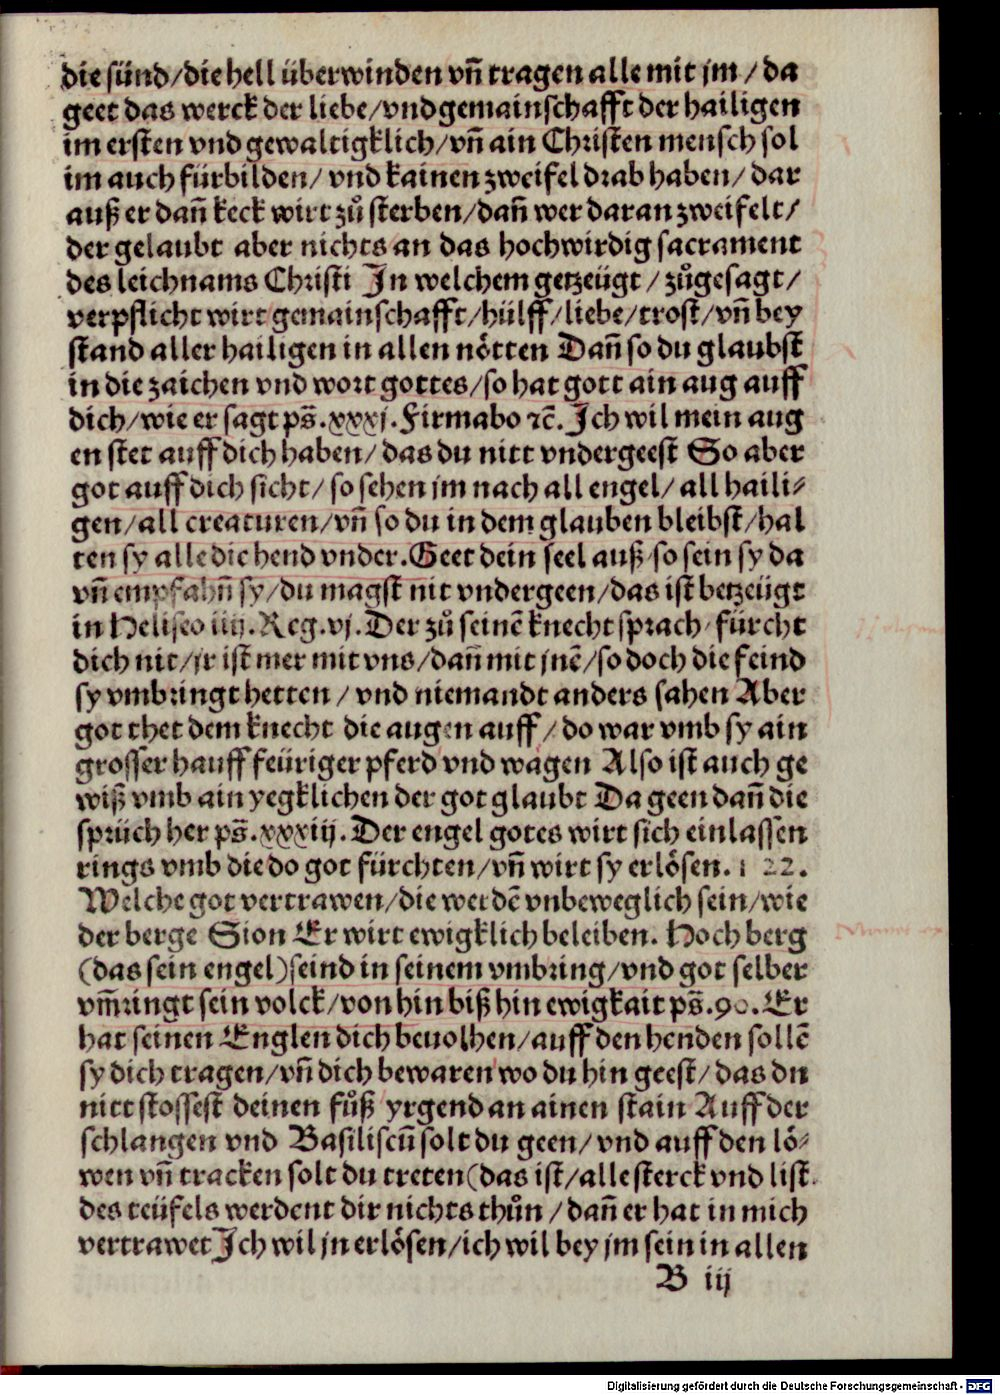 die sünd/die hell überwinden vñ tragen alle mit jm / da
geet das werck der liebe/vnd gemainschafft der hailigen
im ersten vnd gewaltigklich/vñ ain Christen mensch sol
im auch fürbilden/ vnd kainen zweifel drab haben/ dar
auß er dañ keck wirt zů sterben/dañ wer daran zweifelt/
der gelaubt aber nichts an das hochwirdig sacrament
des leichnams Christi In welchem getzeügt / zůgesagt/
verpflicht wirt gemainschafft/hülff/liebe/trost/vñ bey
stand aller hailigen in allen nötten Dañ so du glaubst
in die zaichen vnd wort gottes/so hat gott ain aug auff
dich/wie er sagt ps̄.xxxj.Firmabo ⁊c̄.Ich wil mein aug
en stet auff dich haben/ das du nitt vndergeest So aber
got auff dich sicht/ so sehen jm nach all engel/ all haili⸗
gen/all creaturen/vñ so du in dem glauben bleibst/hal
ten sy alle die hend vnder.Geet dein seel auß/so sein sy da
vñ empfahñ sy/du magst nit vndergeen/das ist betzeügt
in Heliseo iiij.Reg.vj.Der zů seinē knecht sprach/fürcht
dich nit/jr ist mer mit vns/dañ mit jnē/so doch die feind
sy vmbringt hetten / vnd niemandt anders sahen Aber
got thet dem knecht die augen auff/ do war vmb sy ain
grosser hauff feüriger pferd vnd wägen Also ist auch ge
wiß vmb ain yegklichen der got glaubt Da geen dañ die
sprüch her ps̄.xxxiij.Der engel gotes wirt sich einlassen
rings vmb die do got fürchten/vñ wirt sy erlösen.1 22.
Welche got vertrawen/die werdē vnbeweglich sein/wie
der berge Sion Er wirt ewigklich beleiben. Hoch berg
(das sein engel)seind in seinem vmbring/vnd got selber
vm̄ringt sein volck/von hin biß hin ewigkait ps̄.90.Er
hat seinen Englen dich beuolhen/auff den henden sollē
sy dich tragen/vñ dich bewaren wo du hin geest/ das du
nitt stossest deinen fůß yrgend an ainen stain Auff der
schlangen vnd Basiliscū solt du geen/ vnd auff den lö⸗
wen vñ tracken solt du treten(das ist/alle sterck vnd list
des teüfels werdent dir nichts thůn / dañ er hat in mich
vertrawet Ich wil jn erlösen/ich wil bey jm sein in allen
B iij
Digitalisierung gefördert durch die Deutsche Forschungsgemeinschaft - DFG